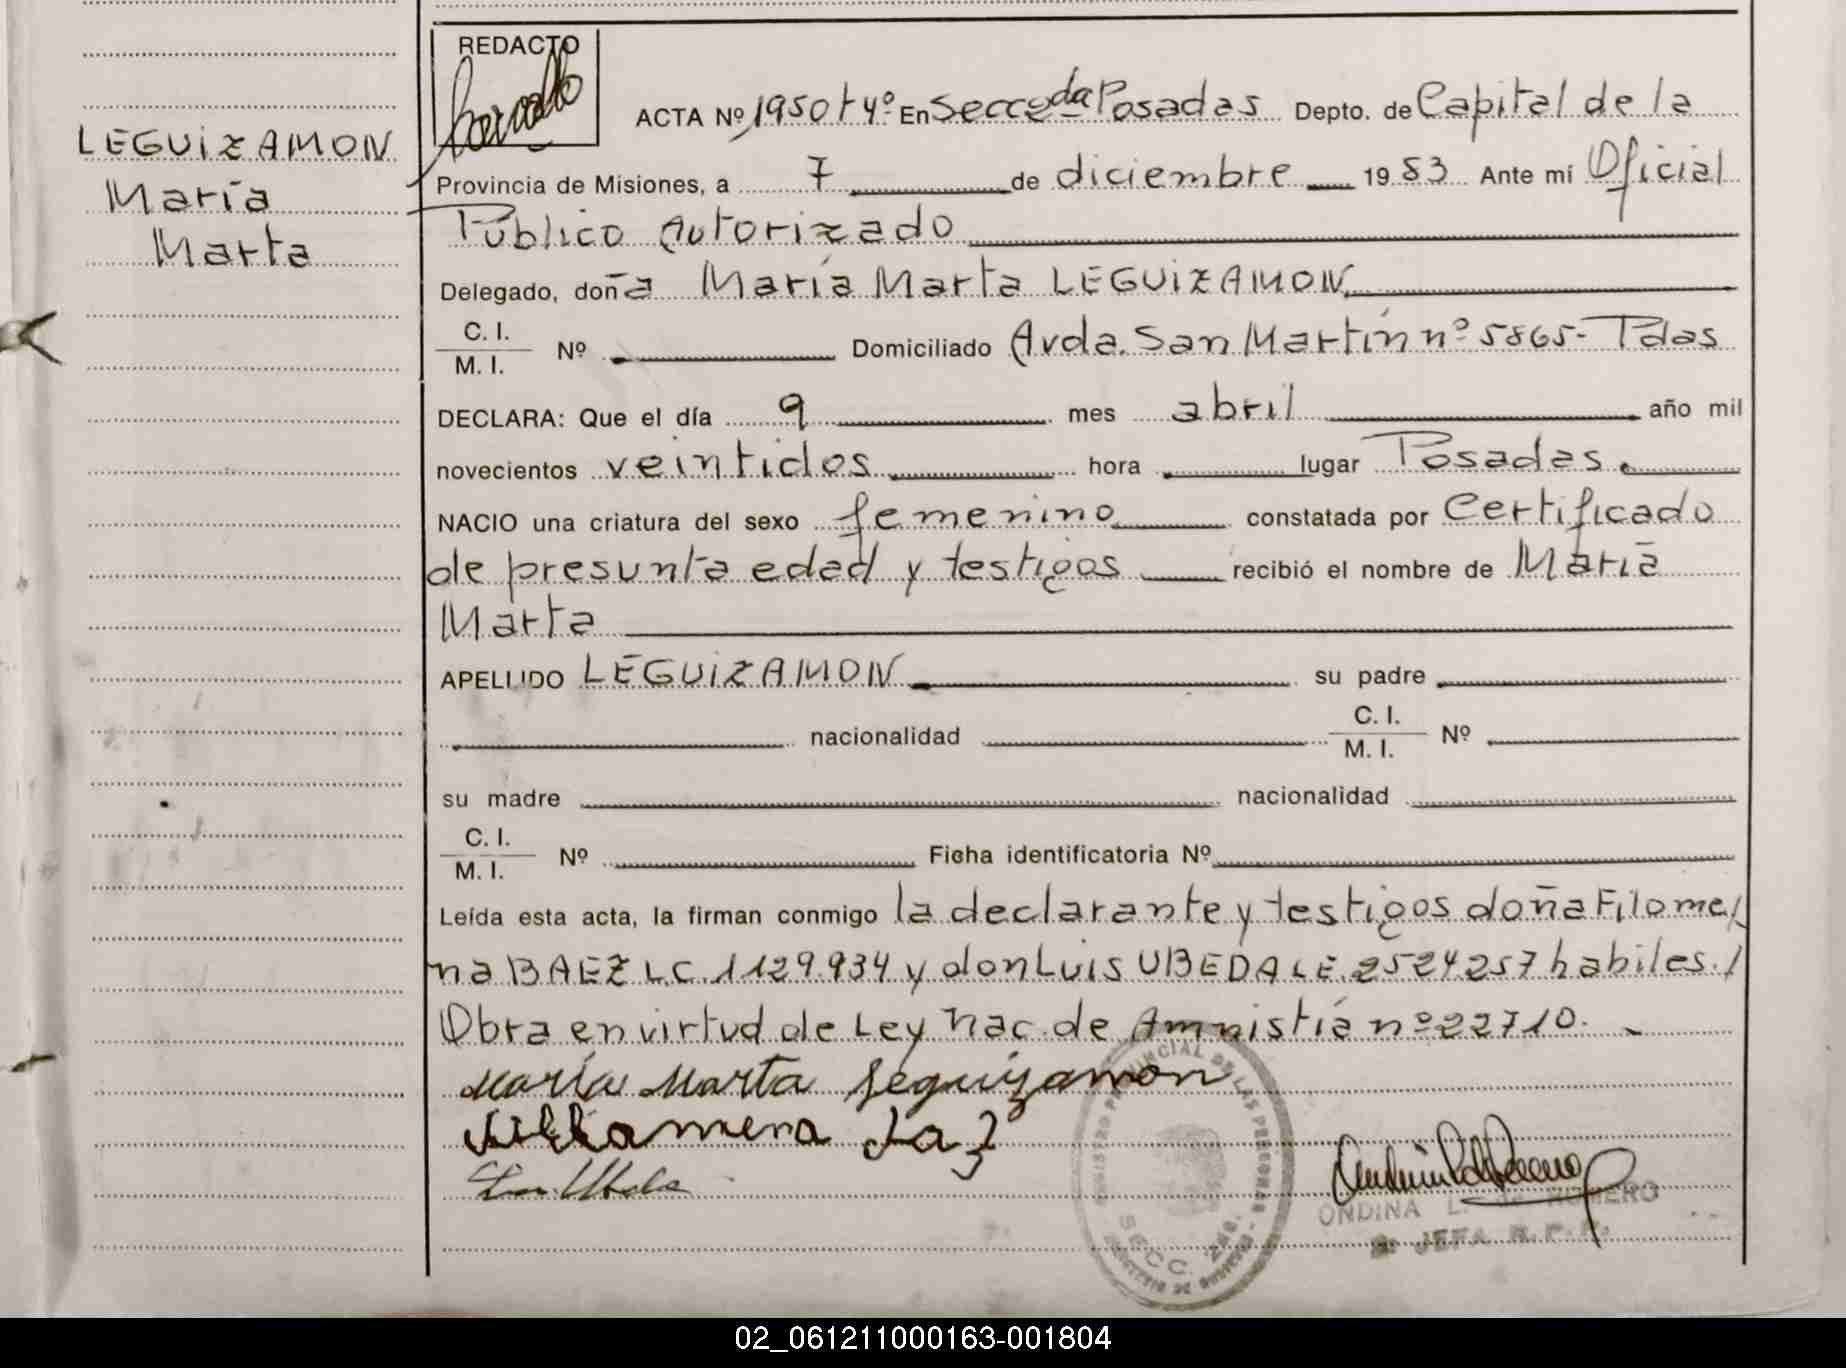 REDACTO
ACTA Nº 1950 t 4º En Secc 2da Posadas Depto. de Capital de la
LEGUIZAMON
María
Marta
Provincia de Misiones, a 7 de diciembre 1983 Ante mí Oficial
Público Autorizado
Delegado, doña María Marta LEGUIZAMON
C. I.
M. I. Nº Domiciliado Avda. San Martín nº 5865- Pdas
DECLARA: Que el día 9 mes abril año mil
novecientos veintidos hora lugar Posadas
NACIO una criatura del sexo femenino constatada por Certificado
de presunta edad y testigos recibió el nombre de María
Marta
APELLIDO LEGUIZAMON su padre
nacionalidad C. I.
M. I. Nº
su madre nacionalidad
C. I.
M. I. Nº Ficha identificatoria Nº
Leída esta acta, la firman conmigo la declarante y testigos doña Filome/
na BAEZ L.C. 1129.934 y don Luis UBEDA L.E. 2524257 habiles./
Obra en virtud de Ley Nac. de Amnistía nº 22710.
María Marta Leguizamon
REGISTRO PROVINCIAL DE LAS PERSONAS
SECC. 2da.
ONDINA L. de ROMERO
JEFA R. P. P.
02_061211000163-001804